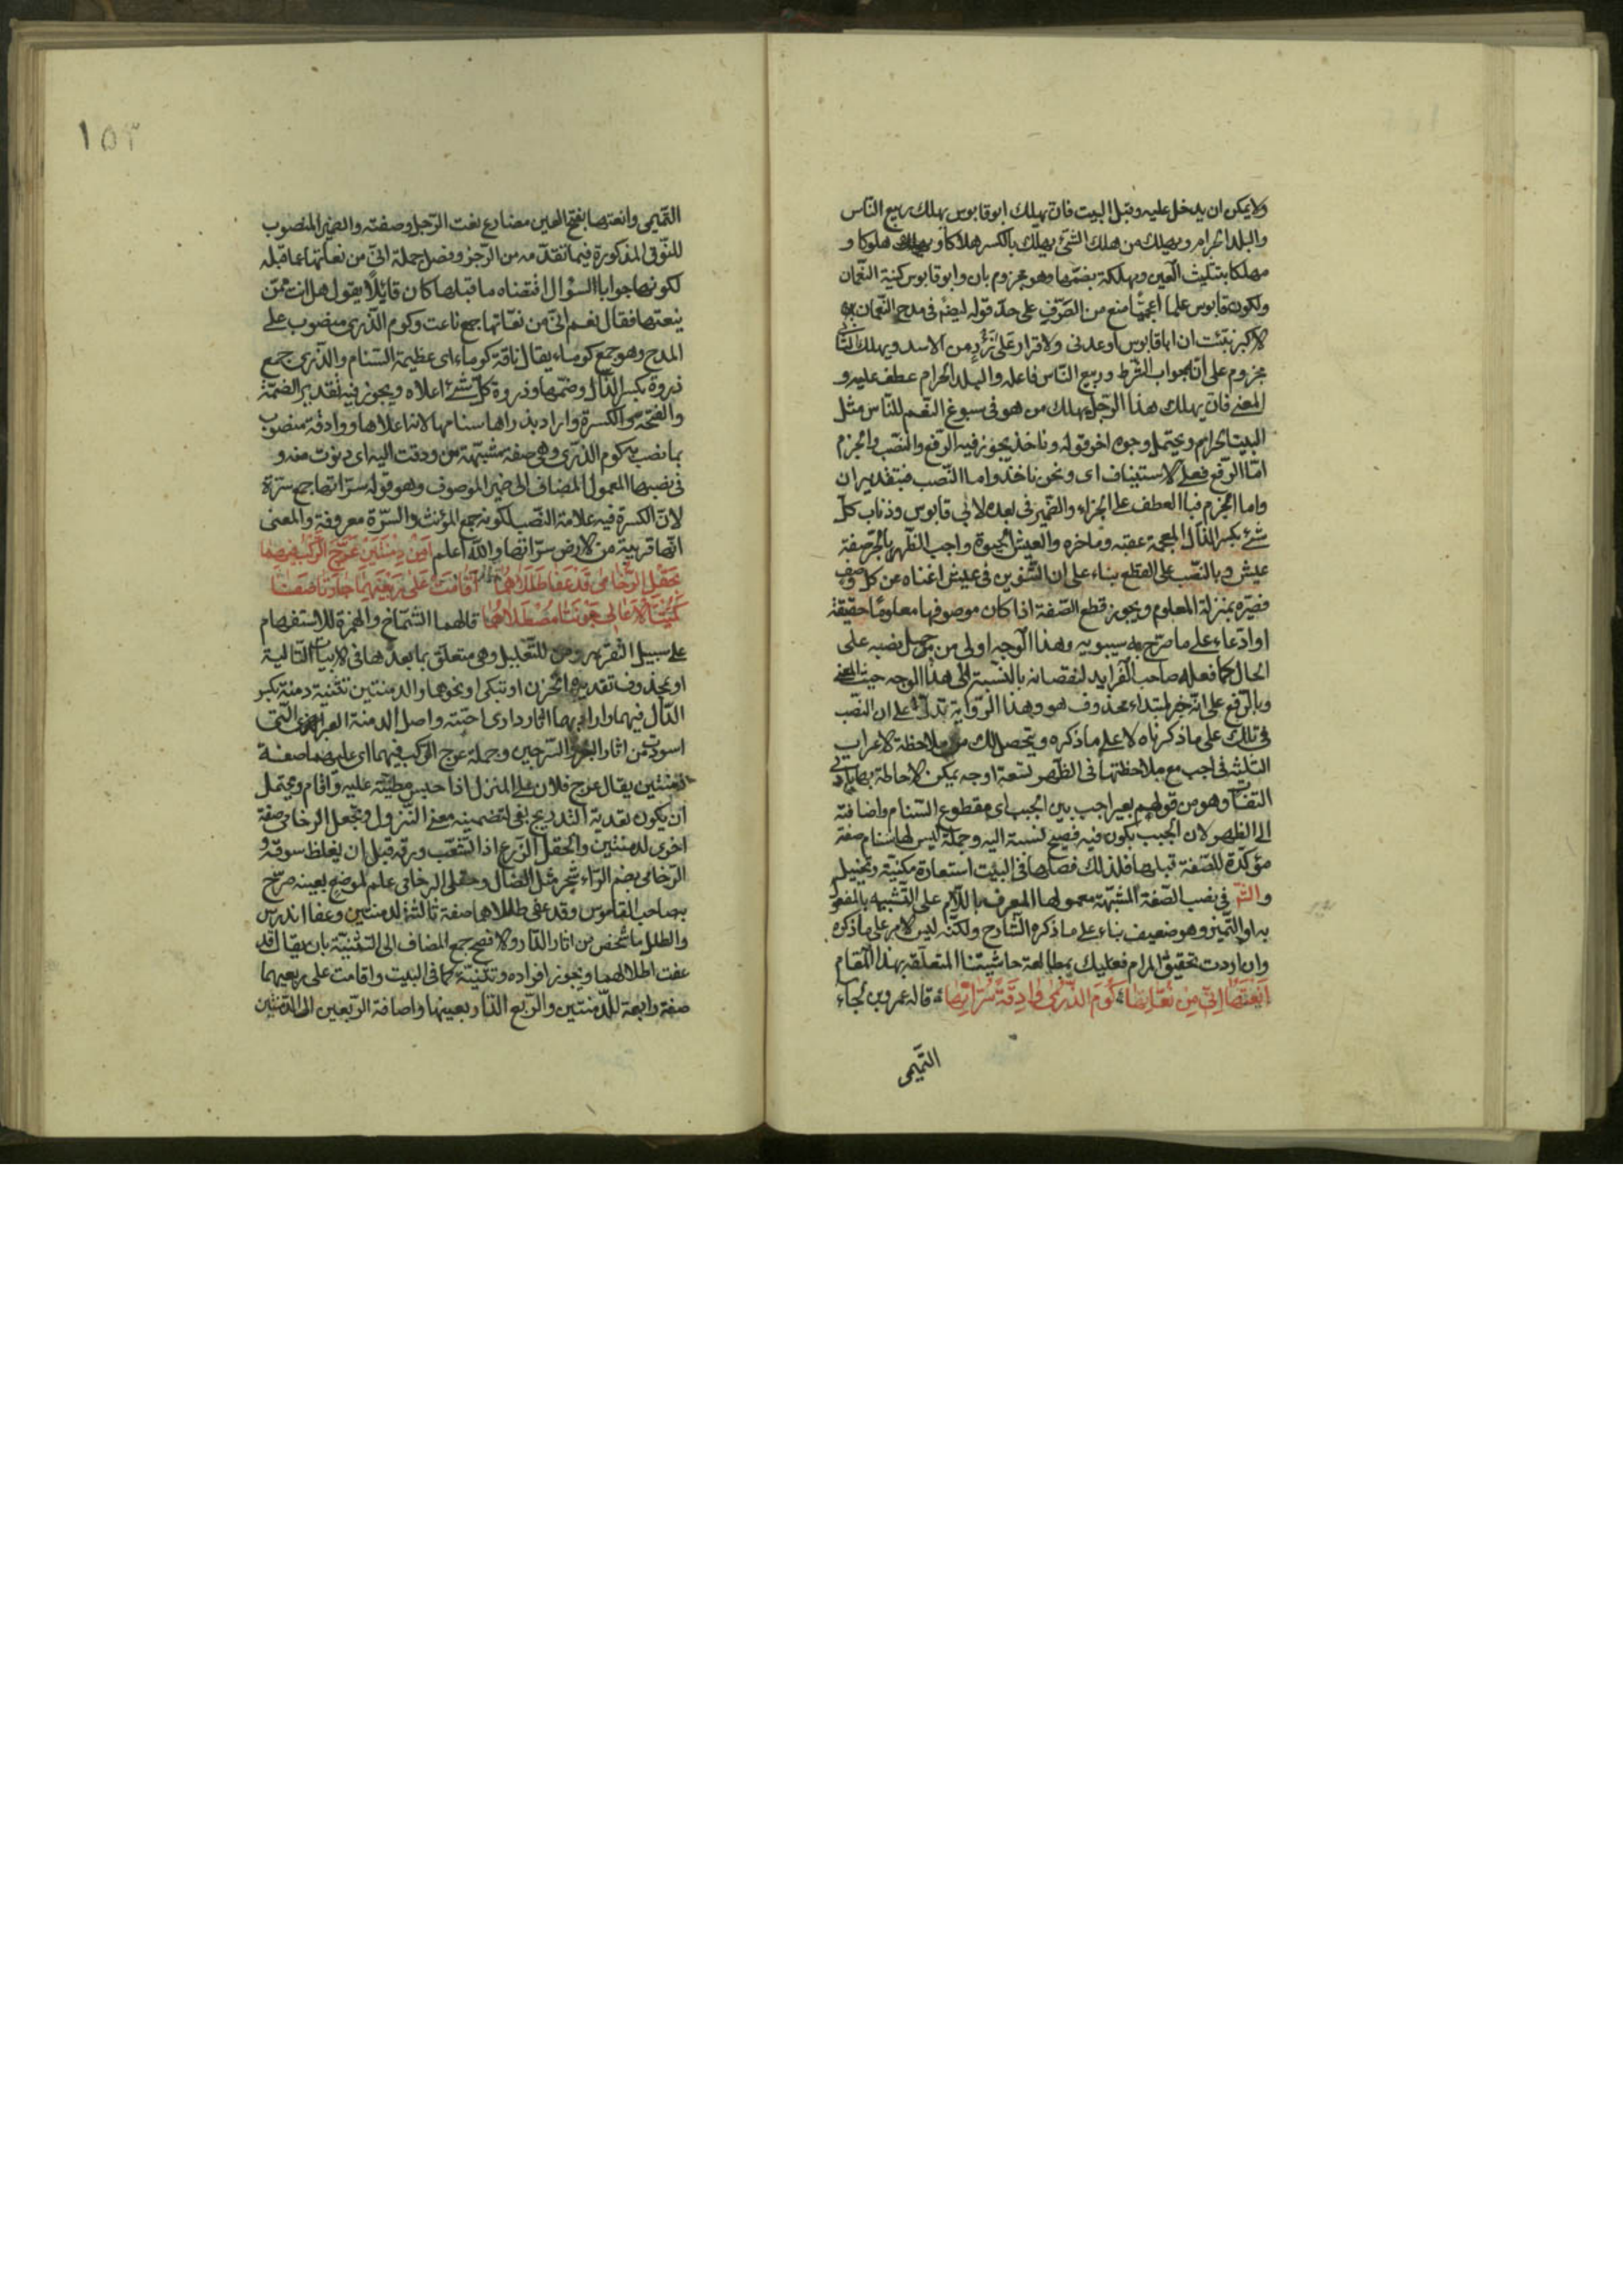 ولا يمكن ان يدخل عليه وقبل البيت فان يهلك ابو قابوس يهلك ربيع الناس
والبلد الحرام ويهلك من هلك الشئ يهلك بالكسر هلاكا وهلوكا و
مهلكا بتثليث العين وتهلكة بضمها وهو مجزوم بان وابو قابوس كنية النعمان
ولكون قابوس علما اعجميا منع من الصرف على حد قوله ايضا في مدح النعمان
نبئت ان ابا قابوس اوعدني ولا قرار على زأر من الاسد ويهلك الثاني
مجزوم على انه جواب الشرط وربيع الناس فاعله والبلد الحرام عطف عليه و
المعنى فان يهلك هذا الرجل يهلك من هو في سبوغ النعم للناس مثل
البيت الحرام ويحتمل وجوه اخر قوله وناخذ يجوز فيه الرفع والنصب والجزم
امّا الرفع فعلى الاستيناف اى ونحن ناخذ واما النصب فبتقدير ان
واما الجزم فبا العطف على الجزاء والضمير في بعده لابى قابوس وذناب كل
شئ بكسر الذال المعجمة عقبه وماخره والعيش الحيوة واجب الظهر بالجر صفة
عيش وبالنصب على القطع بناء على ان التنوين في عيش اغناه عن كل وصف
فصيّره بمنزلة المعلوم ويجوز قطع الصفة اذا كان موصوفها معلوما حقيقة
او ادّعاء على ما صرّح به سيبويه وهذا الوجه اولى من جعل نصبه على
الحال كما فعله صاحب الفرايد لنقصانه بالنسبة الى هذا الوجه حيث المعنى
وبالرفع على انه خبر لمبتداء محذوف هو وهذا الرواية تدل على ان النصب
في تلك على ما ذكرناه لا على ما ذكره ويتحصل لك من ملاحظة الاعراب
الثلثه في اجب مع ملاحظتها في الظهر تسعة اوجه يمكن الاحاطة بها
وهو من قولهم بعير اجب بين الجبب اى مقطوع السنام واضافته
الى الظهر لان الجبب يكون فيه فصح نسبة اليه وجملة ليس لها سنام صفة
مؤكدة للصفة قبلها فلذلك فصلها في البيت استعارة مكنية وتخييل
في نصب الصفة المشبهة معمولها المعرف باللام على التشبيه بالمفعول
به او التميز وهو ضعيف بناء على ما ذكره الشارح ولكنه ليس الامر على ما ذكره
وان اردت تحقيق المرام فعليك بمطالعة حاشيتنا المتعلقة بهذا المقام
اَنْعَتُهَا اِنّى مِنْ نُعّاتِهَا كُومَ الذُّرىٰ وَادِقَةً سُرّاتِهَا قاله عمرو بن لجاء
التّميمى
١٥٣
التّميمى وانعتها بفتح العين مضارع نعت الرّجل وصفته والضمير المنصوب
للنوق المذكورة فيما تقدّمه من الرّجز وفصل جملة انّى من نعاتها عما قبله
لكونها جوابا السؤال اقتضاه ما قبلها كان قائلا يقول هل انت ممّن
ينعتها فقال نعم انّى من نعاتها جمع ناعت وكوم الذّرى منصوب على
المدح وهو جمع كوماء يقال ناقة كوماء اى عظيمة السّنام والذّرى جمع
ذروة بكسر الذّال وضمّها وذروة كل شئ اعلاه ويجوز فيه تقدير الضمّة
والفتحة والكسرة واراد بذراها سنامها لانه اعلاها ووادقة منصوب
بما نصب به كوم الذّرى وهى صفة مشبهة من ودقت اليه اى دنوت منه و
في نصبها المعمول المضاف الى ضمير الموصوف وهو قوله سرّاتها جمع سرّة
لانّ الكسرة فيه علامة النّصب لكونه جمع المؤنث والسّرّة معروفة والمعنى
انّها قريبة من الارض سرّاتها والله اعلم اَمِنْ دِمْنَتَيْنِ عَرَّجَ الرَّكْبُ فيهما
بحَقْلِ الرُّخَامى قَدْ عَفَا طَلَلَاهُمَا اَقَامَتْ عَلى رَبْعَيْهِمَا جَارَتَا صَفًا
كُمَيْتَا الاَعَالى جَوْنَتَا مُصْطَلاهُمَا قالهما الشّمّاخ والهمزة للاستفهام
على سبيل التقرير ومن للتّعليل وهى متعلق بما بعدهما في الابيات التالية
او بمحذوف تقديره اتحزن او تبكى او نحوهما والدمنتين تثنية دمنة بكسر
الدّال فيهما واراد بهما اثار دارى احبته واصل الدمنة
اسودت من اثار البعر والسرجين وجملة عرج الركب فيهما اى عليهما صفة
لدمنتين يقال عرج فلان على المنزل اذا حبس مطيّته عليه واقام ويحتمل
ان يكون تعدية التدريج بفى لتضمينه معنى النّزول ونجعل الرخامى صفة
اخرى لدمنتين والحقل الزّرع اذا تشعّب ورقه قبل ان يغلظ سوقه و
الرّخامى بضم الرّاء شجر مثل الضّال وحقل الرخامى علم لموضع بعينه صرّح
به صاحب القاموس وقد عفى طللاهما صفة ثالثة لدمنتين وعفا اندرس
والطلل ما شخص من اثار الدّار والافصح جمع المضاف الى التثنية بان يقال قد
عفت اطلالهما ويجوز افراده وتثنيته كما في البيت واقامت على ربعيهما
صفة رابعة للدّمنتين والرّبع الدّار بعينها واضافة الرّبعين الى الدمنتين